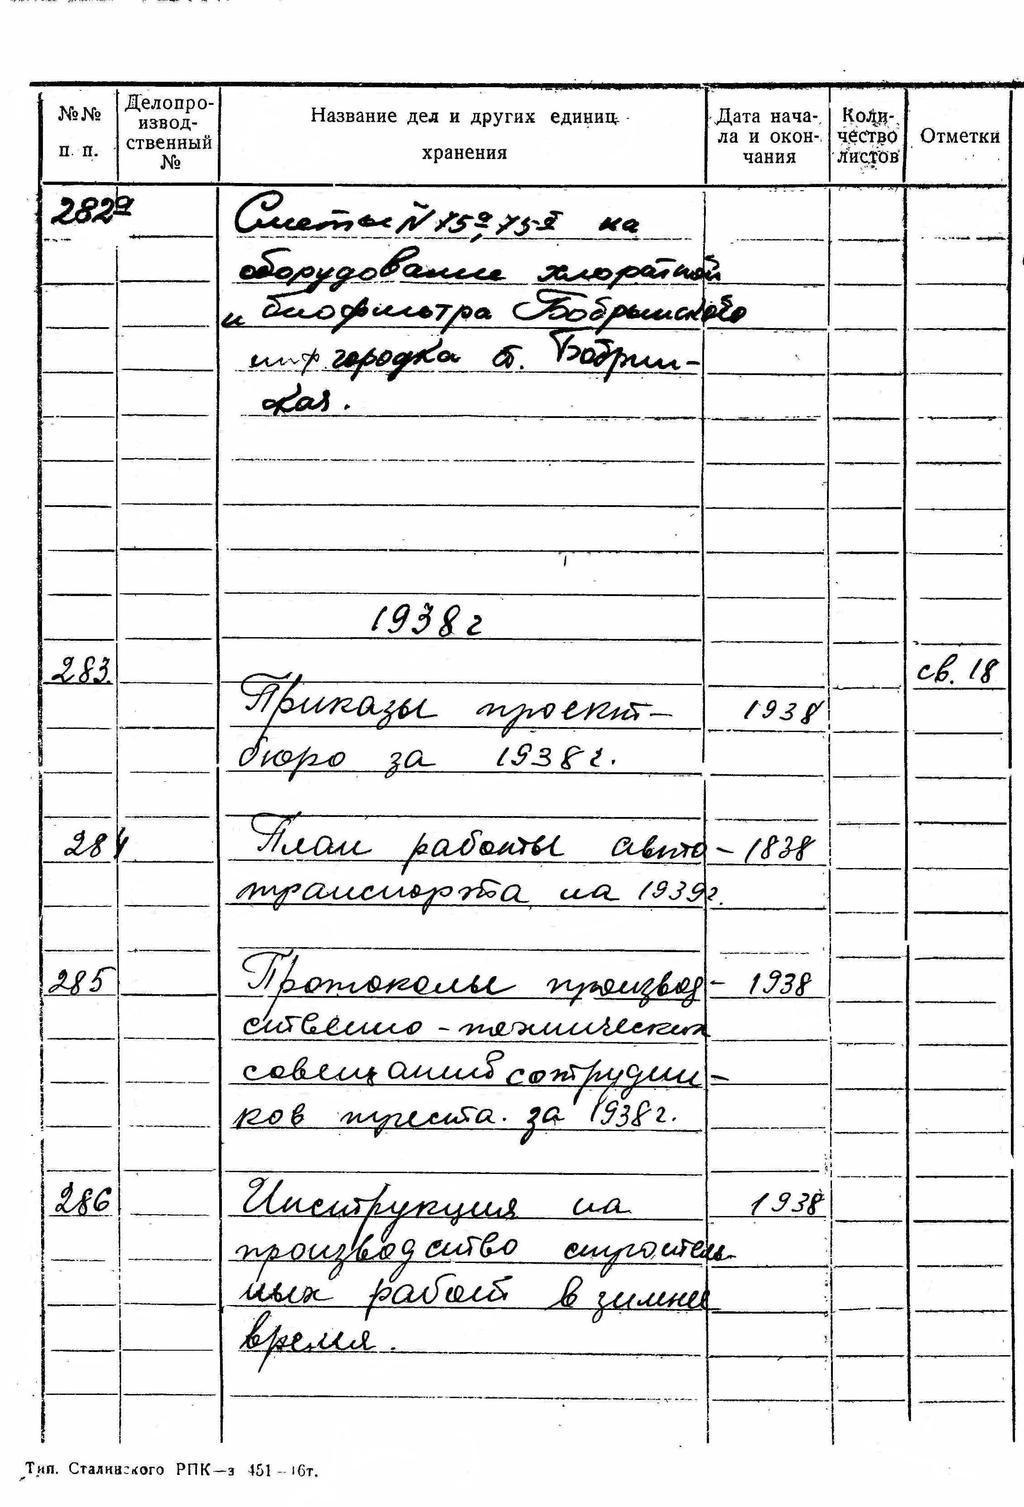 №№ п. п.
Делопро-
извод-
ственный
№
Название дел и других единиц
хранения
Дата нача-
ла и окон-
чания
Коли-
чество
листов
Отметки
282а
Сметы № 75а, 75
на
оборудование хлораторной
и биофильтра Бобрынского
городка ст. Бобрин-
ская.
1938 г
283
св. 18
Приказы проект-
1938
бюро за 1938 г.
284
План работы авто-
1838
транспорта на 1939 г.
285
Протоколы производ-
1938
ственно-технических
совещаний сотрудни-
ков треста за 1938 г.
286
Инструкция на
1938
производство строитель-
ных работ в зимнее
время.
Тип. Сталинского РПК—з 451—46г.